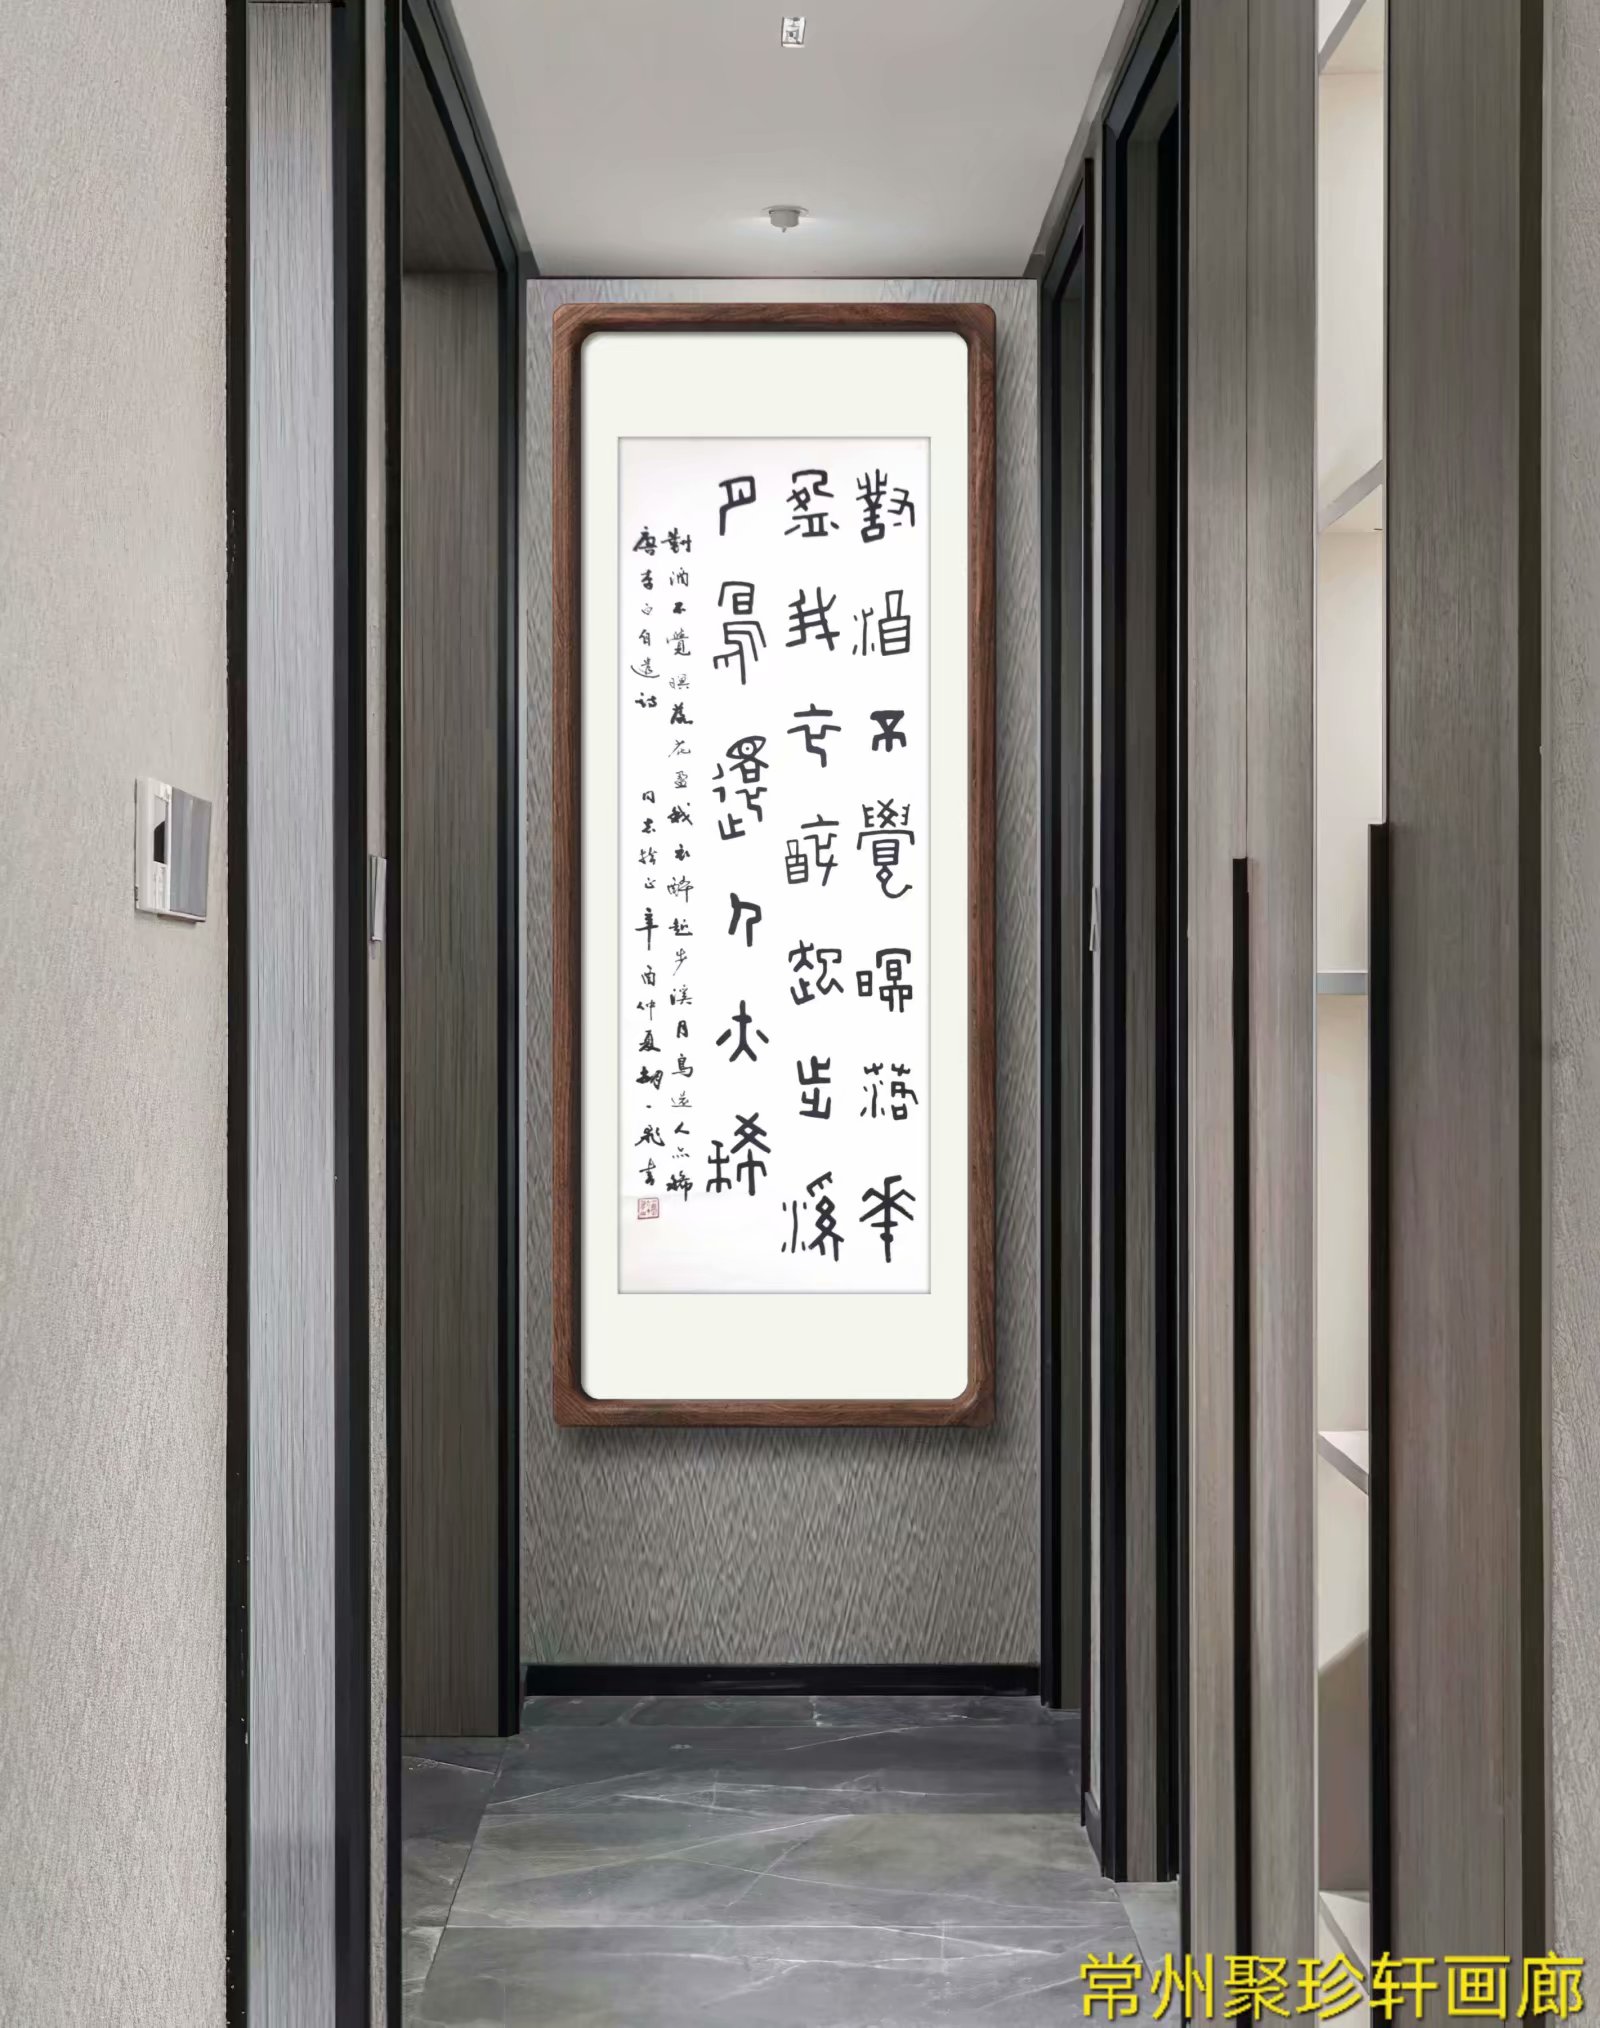 對酒不覺暝落華
盈我衣醉起步溪
月鳥還人亦稀
對酒不覺暝落花盈我衣醉起步溪月鳥還人亦稀
唐李白自遣詩 同志指正 辛酉仲夏 一飛書
常州聚珍轩画廊